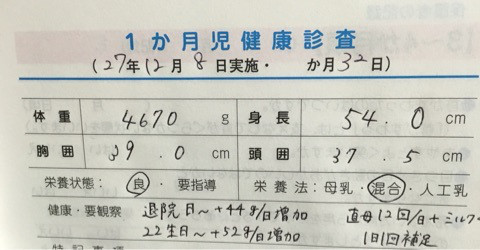 1か月児健康診査
(27年12月8日実施・ か月32日)
体重 4670 g 身長 54.0 cm
胸囲 39.0 cm 頭囲 37.5 cm
栄養状態: 良・要指導 栄養法:母乳・混合・人工乳
健康・要観察 退院日〜+44g/日増加 直母12回/日+ミルク
22生日〜+52g/日増加 1日1回補足